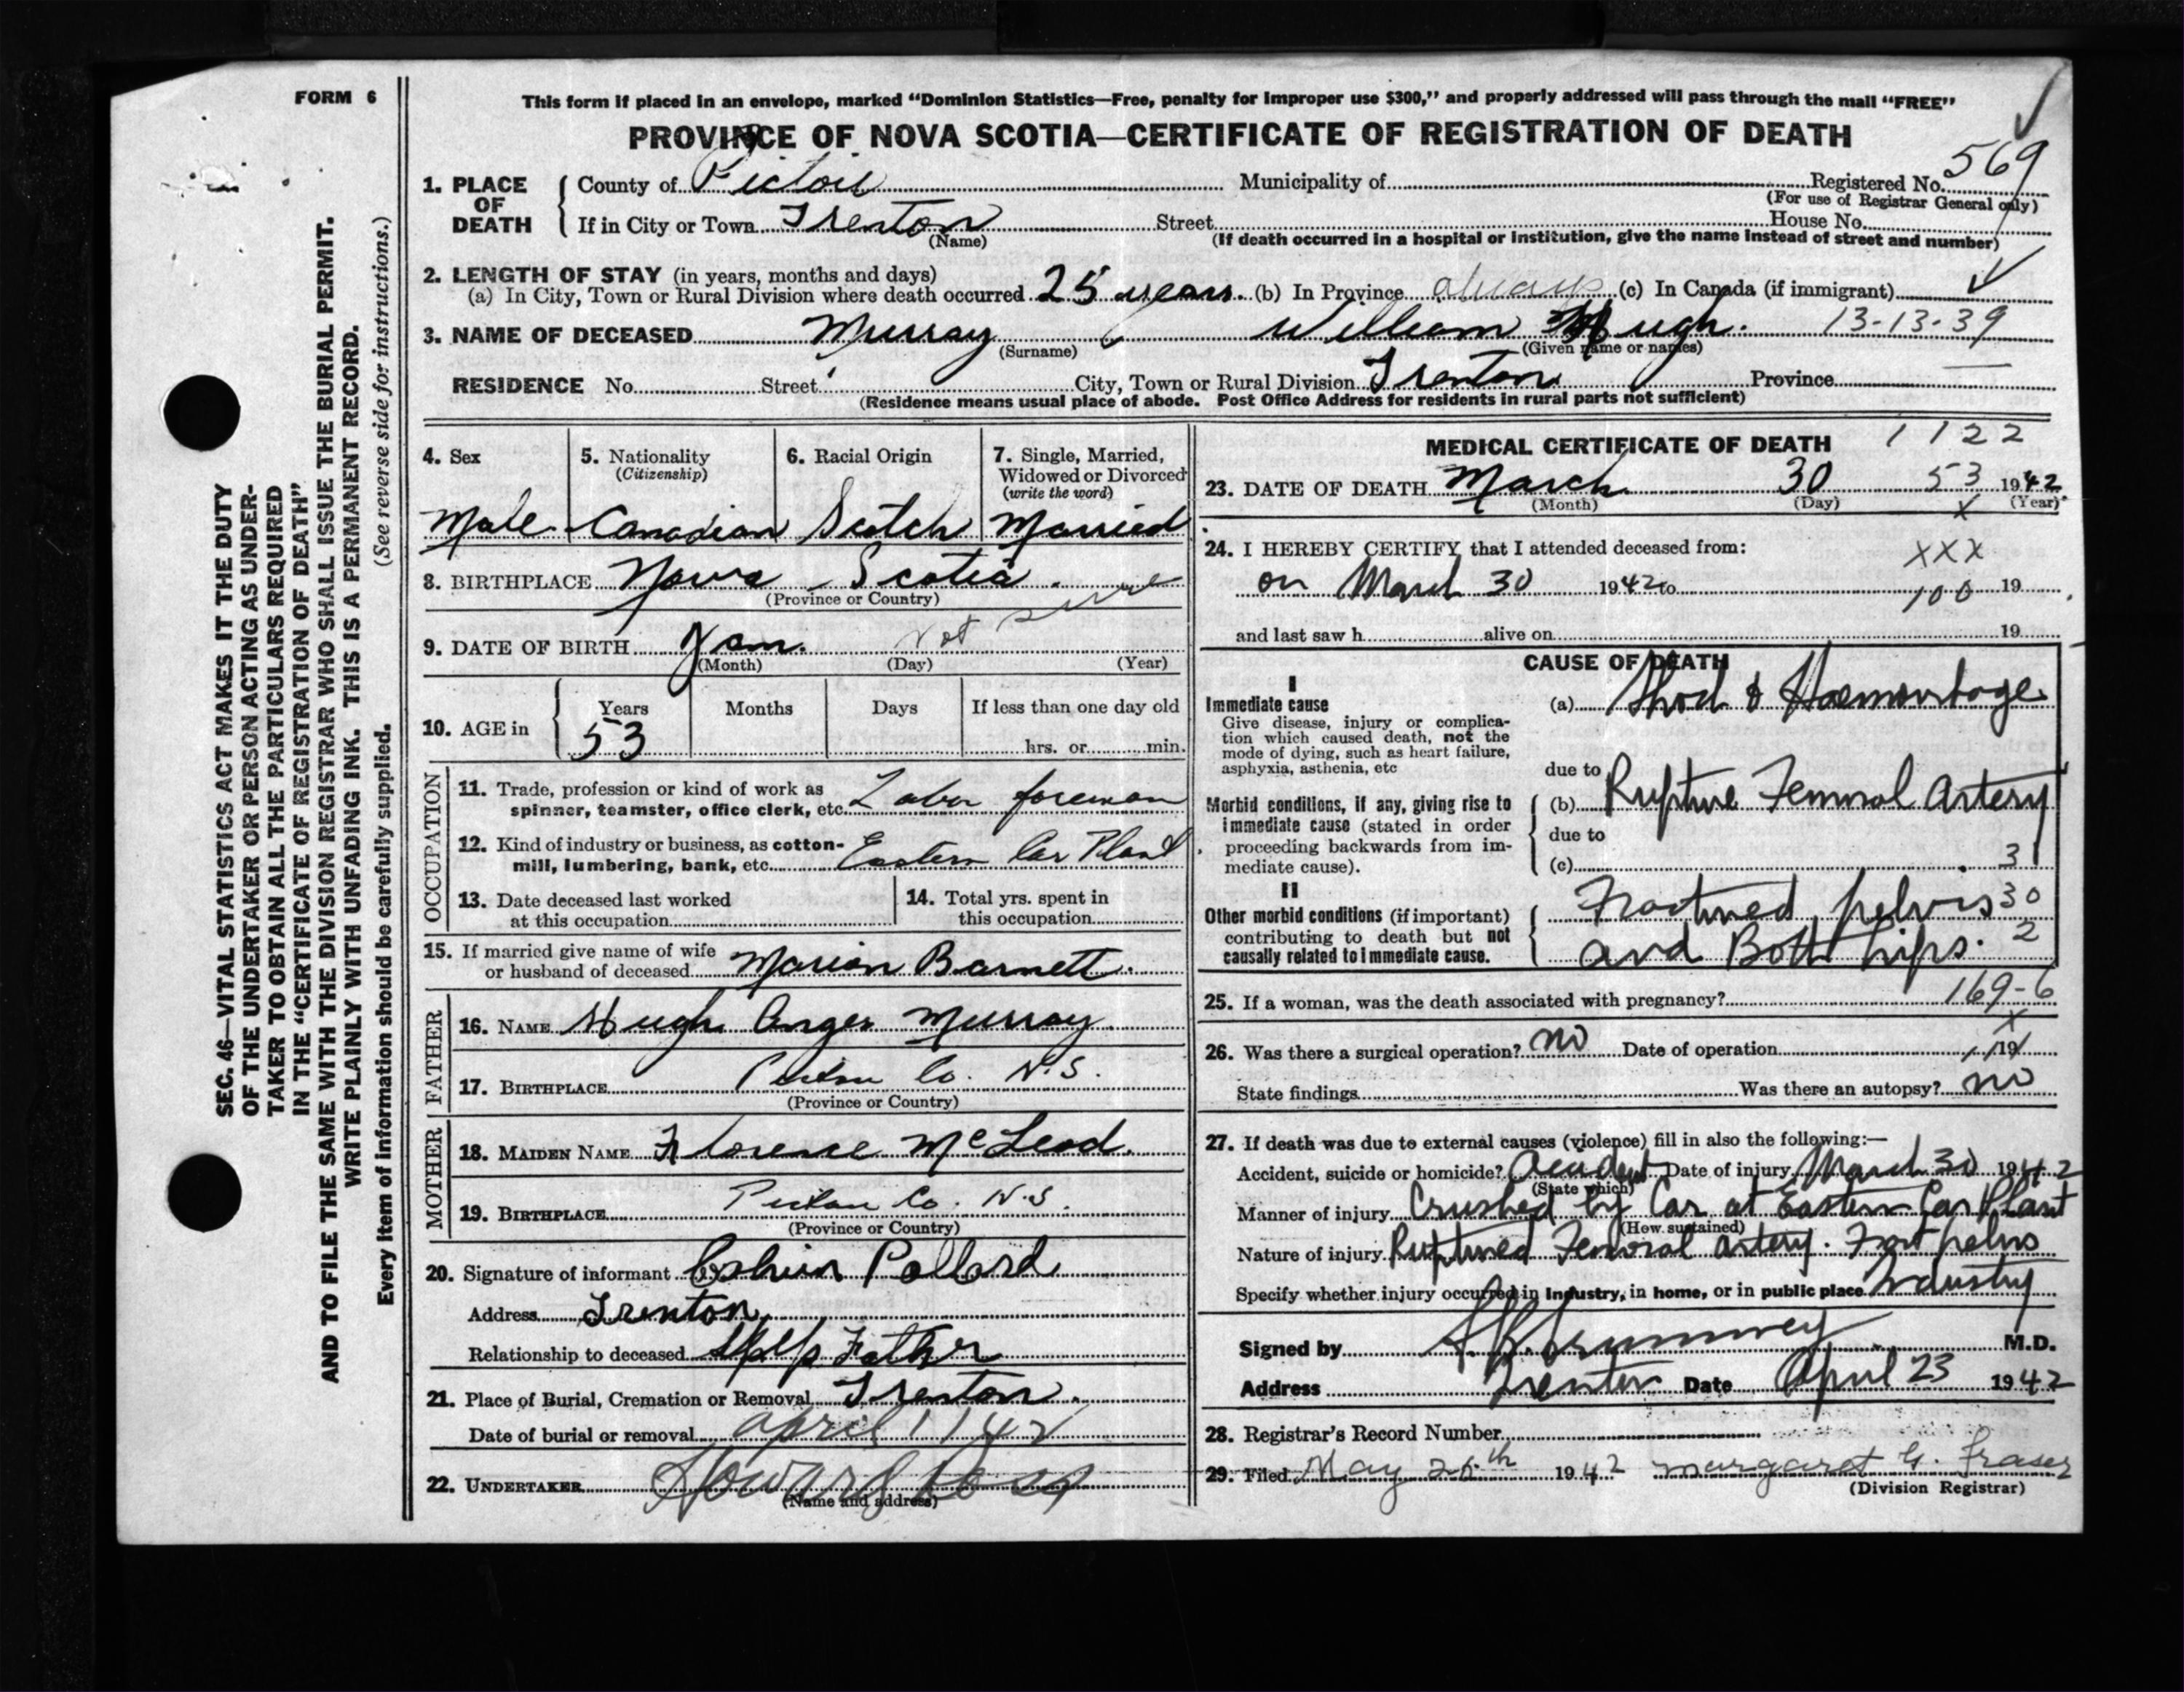 FORM 6
This form if placed in an envelope, marked "Dominion Statistics—Free, penalty for improper use $300," and properly addressed will pass through the mail "FREE"
PROVINCE OF NOVA SCOTIA—CERTIFICATE OF REGISTRATION OF DEATH
569
1. PLACE OF DEATH
County of Pictou Municipality of Registered No.
(For use of Registrar General only)
If in City or Town Trenton Street House No.
(Name)
(If death occurred in a hospital or institution, give the name instead of street and number)
2. LENGTH OF STAY (in years, months and days)
(a) In City, Town or Rural Division where death occurred 25 years. (b) In Province always (c) In Canada (if immigrant)
3. NAME OF DECEASED Murray William Hugh. 13-13-39
(Surname) (Given name or names)
RESIDENCE No. Street City, Town or Rural Division Trenton Province
(Residence means usual place of abode. Post Office Address for residents in rural parts not sufficient)
4. Sex
Male
5. Nationality
(Citizenship)
Canadian
6. Racial Origin
Scotch
7. Single, Married,
Widowed or Divorced
(write the word)
Married
8. BIRTHPLACE Nova Scotia.
(Province or Country)
9. DATE OF BIRTH Jan. Not sure
(Month) (Day) (Year)
10. AGE in
Years Months Days If less than one day old
53 hrs. or min.
OCCUPATION
11. Trade, profession or kind of work as
spinner, teamster, office clerk, etc. Labor foreman
12. Kind of industry or business, as cotton-
mill, lumbering, bank, etc. Eastern Car Plant
13. Date deceased last worked
at this occupation
14. Total yrs. spent in
this occupation
15. If married give name of wife
or husband of deceased Marion Barnett.
FATHER
16. NAME Hugh Anger Murray
17. BIRTHPLACE Pictou Co. N.S.
(Province or Country)
MOTHER
18. MAIDEN NAME Florence McLeod.
19. BIRTHPLACE Pictou Co. N.S.
(Province or Country)
20. Signature of informant Pollard
Address Trenton
Relationship to deceased Father
21. Place of Burial, Cremation or Removal Trenton.
Date of burial or removal April 1 1942
22. UNDERTAKER Howard Ross
(Name and address)
MEDICAL CERTIFICATE OF DEATH 1122
23. DATE OF DEATH March 30 53 1942
(Month) (Day) (Year)
x
24. I HEREBY CERTIFY that I attended deceased from:
xxx
on March 30 1942 to 100 19
and last saw h alive on 19
CAUSE OF DEATH
I
Immediate cause
Give disease, injury or complica-
tion which caused death, not the
mode of dying, such as heart failure,
asphyxia, asthenia, etc
(a) Shock & Haemorrhage
due to
Morbid conditions, if any, giving rise to
immediate cause (stated in order
proceeding backwards from im-
mediate cause).
(b) Rupture Femoral Artery
due to
(c) 31
II
Other morbid conditions (if important)
contributing to death but not
causally related to immediate cause.
Fractured pelvis 30
and Both hips. 2
25. If a woman, was the death associated with pregnancy? 169-6
26. Was there a surgical operation? no Date of operation 19
State findings Was there an autopsy? no
27. If death was due to external causes (violence) fill in also the following:—
Accident, suicide or homicide? Accident Date of injury March 30 1942
(State which)
Manner of injury Crushed by Car at Eastern Car Plant
(How sustained)
Nature of injury Ruptured Femoral artery. Fract pelvis
Specify whether injury occurred in Industry, in home, or in public place Industry
Signed by M.D.
Address Trenton Date April 23 1942
28. Registrar's Record Number
29. Filed May 25th 1942 Margaret G. Fraser
(Division Registrar)
SEC. 46—VITAL STATISTICS ACT MAKES IT THE DUTY
OF THE UNDERTAKER OR PERSON ACTING AS UNDER-
TAKER TO OBTAIN ALL THE PARTICULARS REQUIRED
IN THE "CERTIFICATE OF REGISTRATION OF DEATH"
AND TO FILE THE SAME WITH THE DIVISION REGISTRAR WHO SHALL ISSUE THE BURIAL PERMIT.
WRITE PLAINLY WITH UNFADING INK. THIS IS A PERMANENT RECORD.
Every item of information should be carefully supplied. (See reverse side for instructions.)